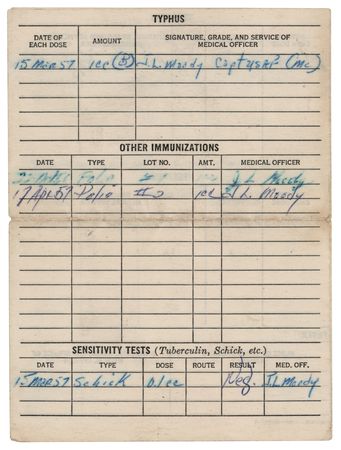 TYPHUS
DATE OF EACH DOSE AMOUNT SIGNATURE, GRADE, AND SERVICE OF MEDICAL OFFICER
15 Mar 57 1cc (B) J.L. Moody Capt USAF (MC)
OTHER IMMUNIZATIONS
DATE TYPE LOT NO. AMT. MEDICAL OFFICER
Polio #1 J L Moody
17 Apr 57 Polio #2 1cc J L Moody
SENSITIVITY TESTS (Tuberculin, Schick, etc.)
DATE TYPE DOSE ROUTE RESULT MED. OFF.
15 Mar 57 Schick 0.1cc Neg. J.L. Moody